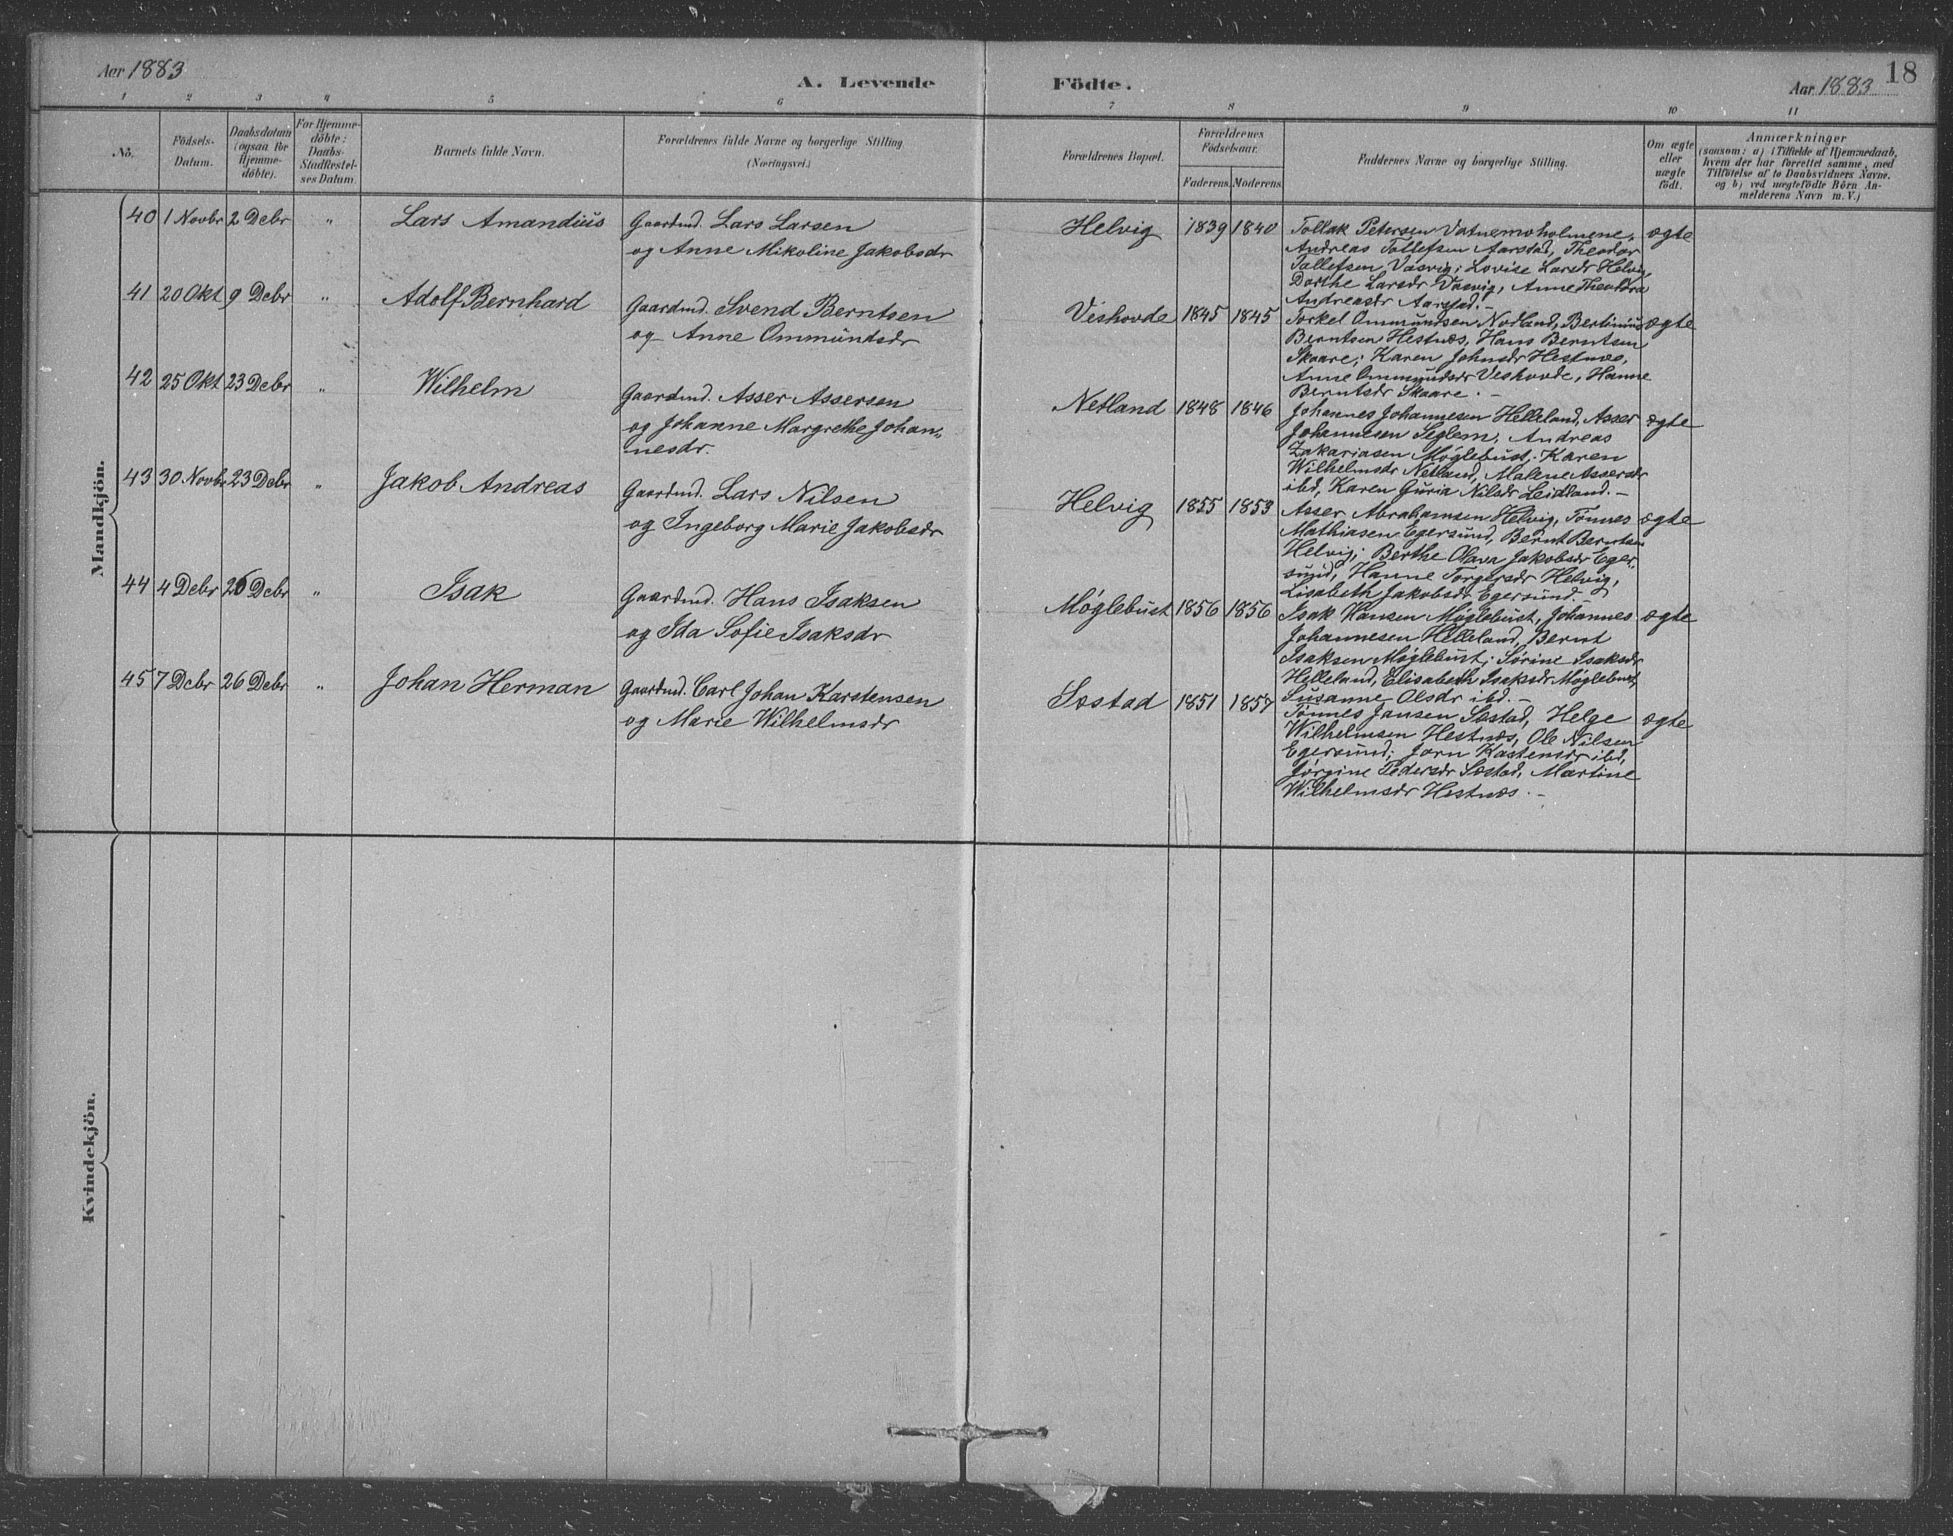 Aar 1883
A. Levende Födte.
Aar 1883
18
1 2 3 4 5 6 7 8 9 10 11
No.
Födsels-
Datum.
Daabsdatum
(ogsaa for
Hjemme-
döbte).
For Hjemme-
döbte:
Daabs-
Stadfæstel-
ses Datum.
Barnets fulde Navn.
Forældrenes fulde Navne og borgerlige Stilling
(Næringsvei.)
Forældrenes Bopæl.
Forældrenes
Födselsaar.
Faderens. Moderens.
Faddernes Navne og borgerlige Stilling.
Om ægte
eller
uægte
födt.
Anmærkninger
(saasom: a) i Tilfælde af Hjemmedaab,
hvem der har forrettet samme, med
Tilföielse af to Daabsvidners Navne,
og b) ved uægtefödte Börn An-
melderens Navn m. V.)
Mandkjön.
40 1 Novbr 2 Debr " Lars Amandius
Gaardmd. Lars Larsen
og Anne Mikoline Jakobsdr
Helvig 1839 1840
Tollak Petersen Vatnemoholmene,
Andreas Tollefsen Aarstad, Theodor
Tollefsen Vasvig; Lovise Larsdr Helvig,
Dorthe Larsdr Vasvig, Anne Theodora
Andreasdr Aarstad. –
ægte
41 20 Okt 9 Debr " Adolf Bernhard
Gaardmd. Svend Berntsen
og Anne Ommundsdr
Veshovde 1845 1845
Torkel Ommundsen Nodland, Bertinius
Berntsen Hestnæs, Hans Berntsen
Skaare; Karen Johnsdr Hestnæs,
Anne Ommundsdr Veshovde, Hanne
Berntsdr Skaare. –
ægte
42 25 Okt 23 Debr " Wilhelm
Gaardmd. Asser Assersen
og Johanne Margrethe Johan-
nesdr.
Netland 1848 1846
Johannes Johannesen Helleland, Asser
Johannesen Seglem, Andreas
Zakariasen Møglebust; Karen
Wilhelmsdr Netland, Malene Assersdr
ibd, Karen Guria Nilsdr Leidland. –
ægte
43 30 Novbr 23 Debr " Jakob Andreas
Gaardmd. Lars Nilsen
og Ingeborg Marie Jakobsdr
Helvig 1855 1853
Asser Abrahamsen Helvig, Tønnes
Mathiasen Egersund, Bernt Berntsen
Helvig; Berthe Olava Jakobsdr Eger-
sund, Hanne Torgersdr Helvig,
Lisabeth Jakobsdr Egersund. –
ægte
44 4 Debr 26 Debr " Isak
Gaardmd. Hans Isaksen
og Ida Sofie Isaksdr
Møglebust 1856 1856
Isak Hansen Møglebust, Johannes
Johannesen Helleland, Bernt
Isaksen Møglebust; Sørine Isaksdr
Helleland, Elisabeth Isaksdr Møglebust,
Susanne Olsdr ibd. –
ægte
45 7 Debr 26 Debr " Johan Herman
Gaardmd. Carl Johan Karstensen
og Marie Wilhelmsdr
Sæstad 1851 1857
Tønnes Jansen Sæstad, Helge
Wilhelmsen Hestnæs, Ole Nilsen
Egersund; Jorn Kastensdr ibd,
Jørgine Pedersdr Sæstad, Martine
Wilhelmsdr Hestnæs. –
ægte
Kvindekjön.